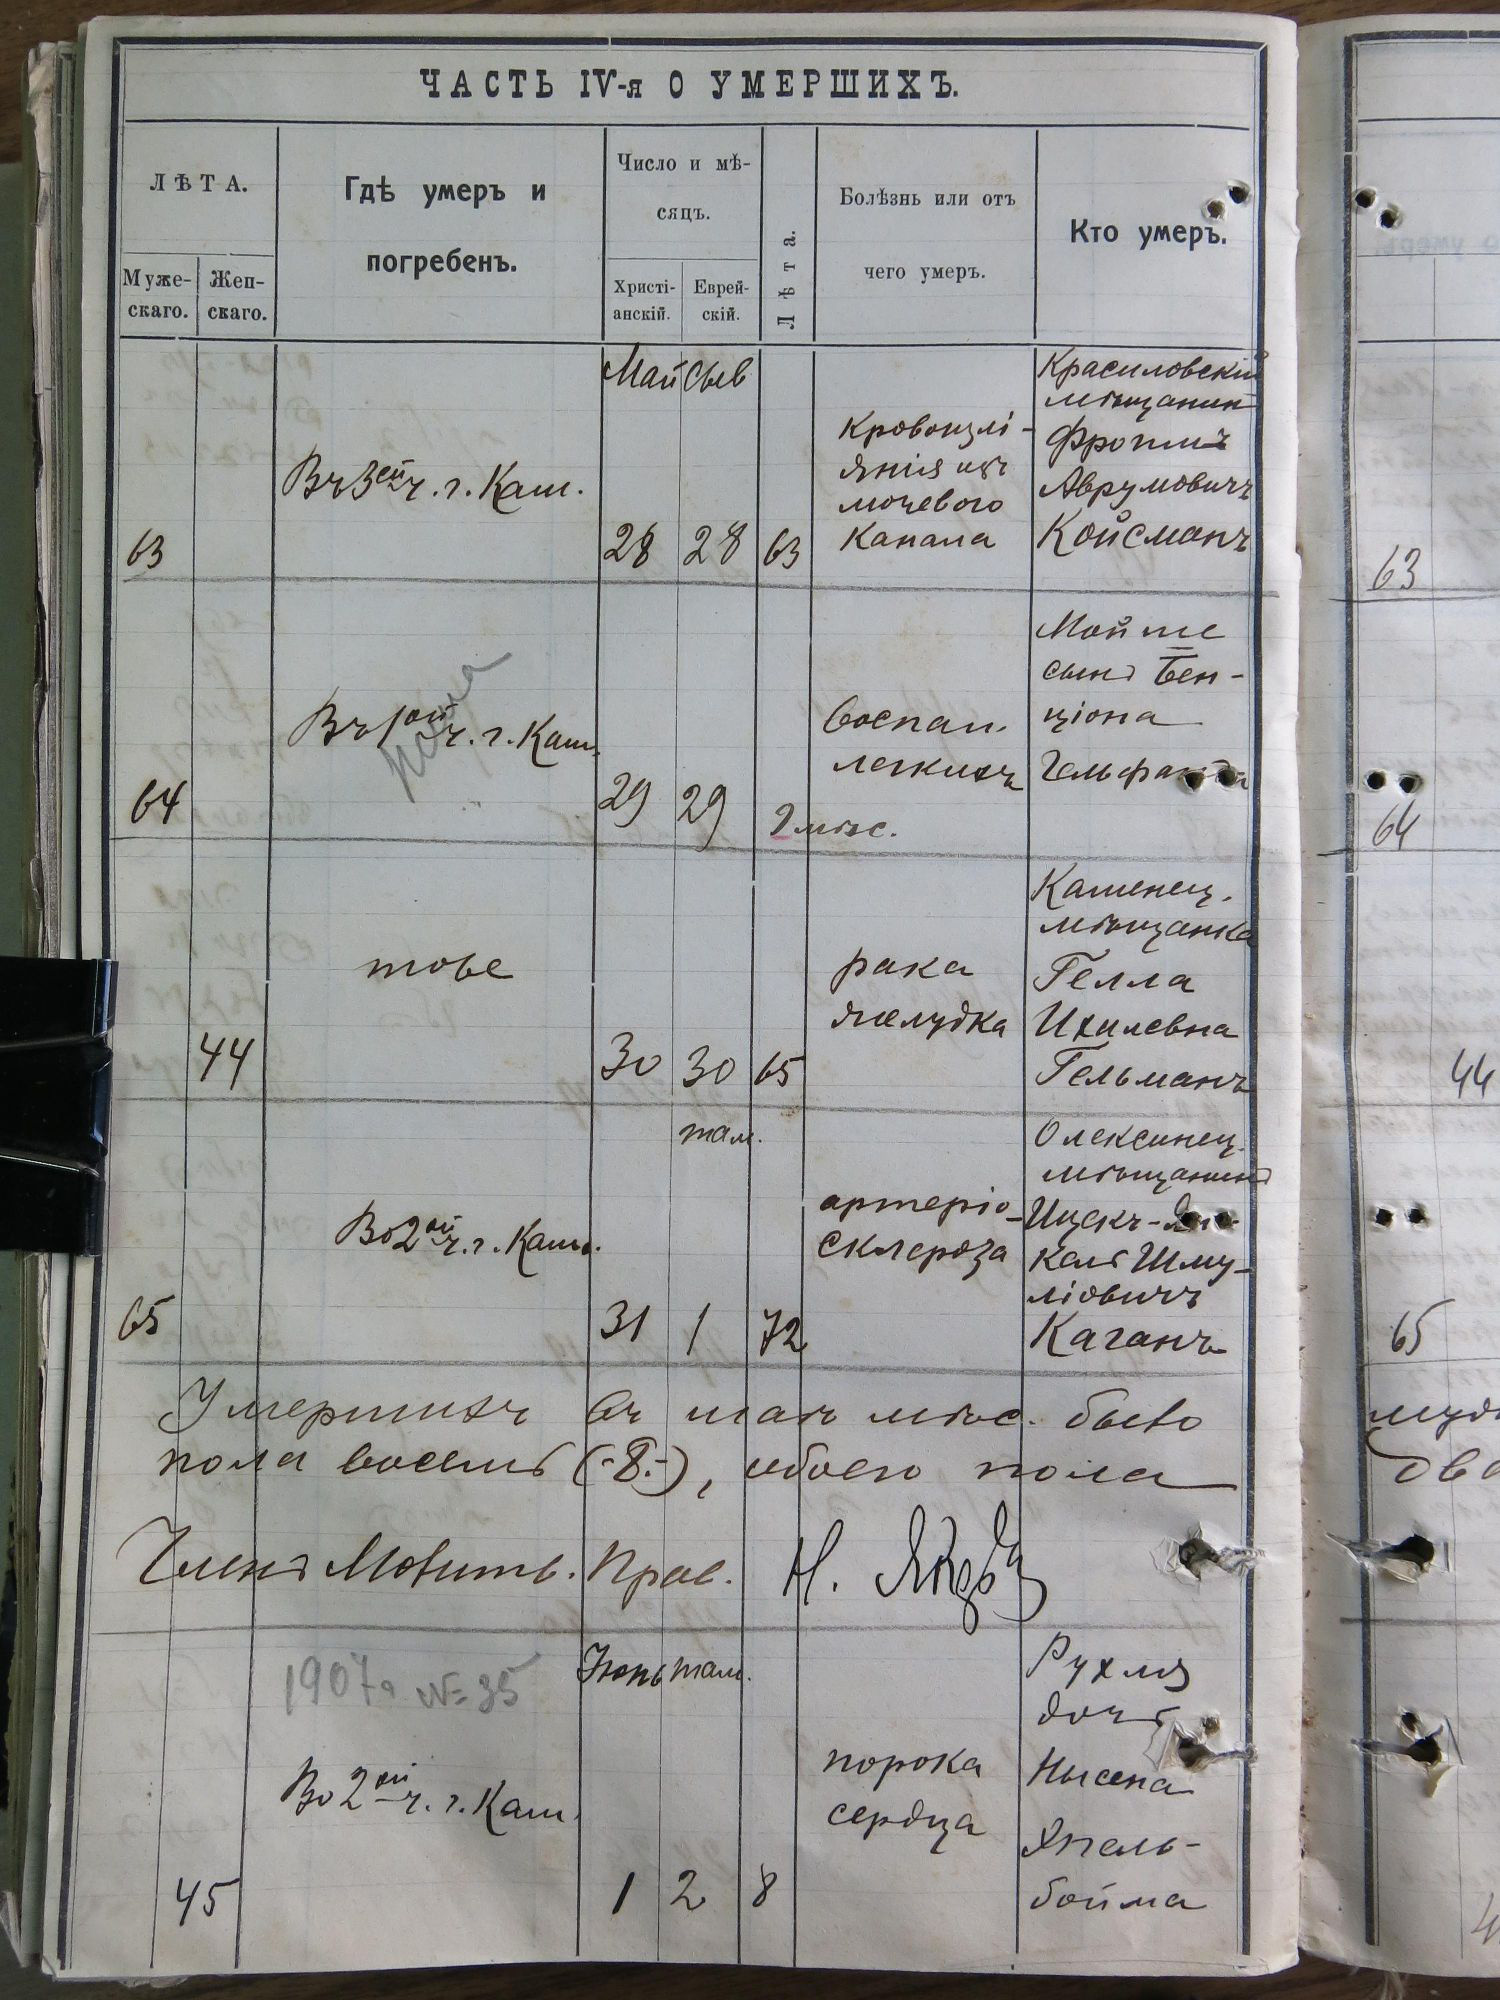 ЧАСТЬ IV-я О УМЕРШИХЪ.
ЛѢТА.
Муже-
скаго.
Жен-
скаго.
Гдѣ умеръ и
погребенъ.
Число и мѣ-
сяцъ.
Христі-
анскій.
Еврей-
скій.
Лѣта.
Болѣзнь или отъ
чего умеръ.
Кто умеръ.
Май Сыв
63
Въ 3ей ч. г. Кам.
28 28 63
Кровоизлі-
янія изъ
мочевого
канала
Красиловскій
мѣщанинъ
Фроимъ
Аврумовичъ
Койсманъ
63
64
Въ 1ой ч. г. Кам.
29 29
9 мѣс.
воспал.
легкихъ
Мойше
сынъ Бен-
ціона
Гельфанда
64
44
тоже
30 30 65
рака
желудка
Каменец.
мѣщанка
Гелла
Ихилевна
Гельманъ
44
там.
65
Во 2ой ч. г. Кам.
31 1 72
артеріо-
склероза
Олексинец.
мѣщанинъ
Ицекъ-Ян-
кель Шму-
ліовичъ
Каганъ
65
Умершихъ въ маѣ мѣс. было
пола восемь (-8.-), обоего пола
Членъ Молитв. Прав. Н.
Іюнь там.
1907 г №35
45
Во 2ой ч. г. Кам.
1 2 8
порока
сердца
Рухля
дочь
Нысена
Япель-
бойма